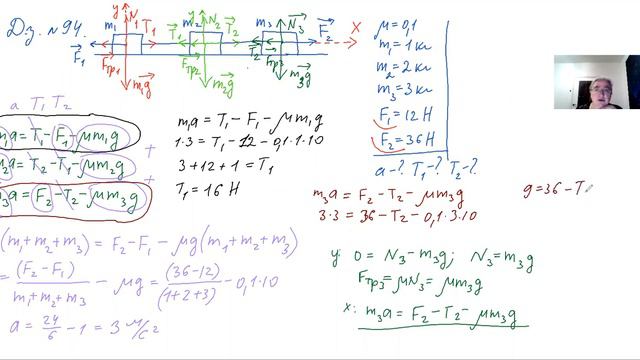 Д.з. №94.
y N₁ T₁ m₁ F₁ Fтр₁ m₁g
T₁ N₂ m₂ T₂ Fтр₂ m₂g
m₃ N₃ F₂ T₂ Fтр₃ m₃g x
μ=0,1
m₁=1кг
m₂=2кг
m₃=3кг
F₁=12Н
F₂=36Н
a-? T₁-? T₂-?
a T₁ T₂
m₁a=T₁-F₁-μm₁g
m₂a=T₂-T₁-μm₂g
m₃a=F₂-T₂-μm₃g
(m₁+m₂+m₃)=F₂-F₁-μg(m₁+m₂+m₃)
=(F₂-F₁)/(m₁+m₂+m₃)-μg=(36-12)/(1+2+3)-0,1·10
a=24/6-1=3 м/с²
m₁a=T₁-F₁-μm₁g
1·3=T₁-12-0,1·1·10
3+12+1=T₁
T₁=16 Н
m₃a=F₂-T₂-μm₃g
3·3=36-T₂-0,1·3·10
9=36-T
y: 0=N₃-m₃g; N₃=m₃g
Fтр₃=μN₃=μm₃g
x: m₃a=F₂-T₂-μm₃g